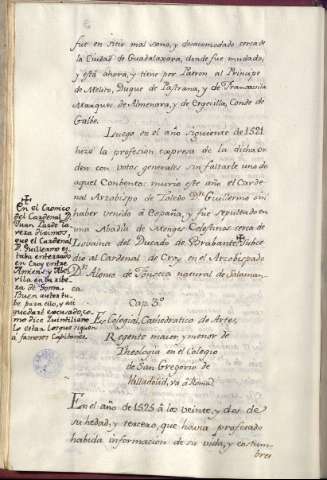 fue en sitio mas sano, y desacomodado cerca de
la Ciudad de Guadalaxara, donde fue mudado,
y está ahora, y tiene por Patron al Principe
de Melito, Duque de Pastrana, y de Francavila
Marques de Almenara, y de Conde de
Galbe.
Luego en el año siguiente de 1521
hizo la profesion expresa de la dicha or
den con votos generales sin faltarle uno de
aquel Convento: murio este año el Carde
nal Arzobispo de Toledo Dn. Guillermo sin
haber venido á España, y fue sepultado en
una Abadia de Monges Celestinos cerca de
Lovaina del Ducado de Brabante. Subce
dio al Cardenal de Croy en el Arzobispado
Dn. Alonso de Fonseca natural de Salaman
ca
En el Cronico
del Cardenal D.
Juan
diximos,
que el Cardenal
D. Guillermo es
taba enterrado
en Croy entre
Amiens y
za de Soma.
Buen autor tu
be para ello, y asi
quedaré escusado, co
mo dice Quintiliano
Lo estan los que siguen
á famosos Capitanes.
Cap. 3º
Es Colegial, Cathedratico de Artes,
Regente maior, y menor de
Theologia en el Colegio
de San Gregorio de
Valladolid, va á Roma
En el año de 1525 á los veinte y dos de
su hedad, y tercero, que havia profesado
habida informacion de su vida, y costum
bres